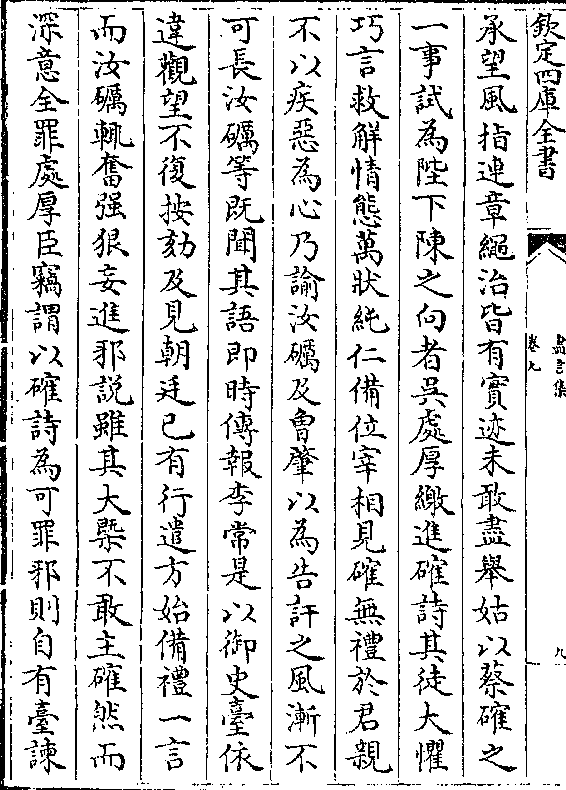 欽定四庫全書
盡言集
卷九
九
承望風指連章繩治皆有實迹未敢盡舉姑以蔡確之
一事試為陛下陳之向者吳處厚繳進確詩其徒大懼
巧言救解情態萬狀純仁備位宰相見確無禮於君親
不以疾惡為心乃諭汝礪及曾肇以為告訐之風漸不
可長汝礪等既聞其語即時傳報李常是以御史臺依
違觀望不復按劾及見朝廷已有行遣方始備禮一言
而汝礪輒奮强狠妄進邪説雖其大槩不敢主確然而
深意全罪處厚臣竊謂以確詩為可罪邪則自有臺諫